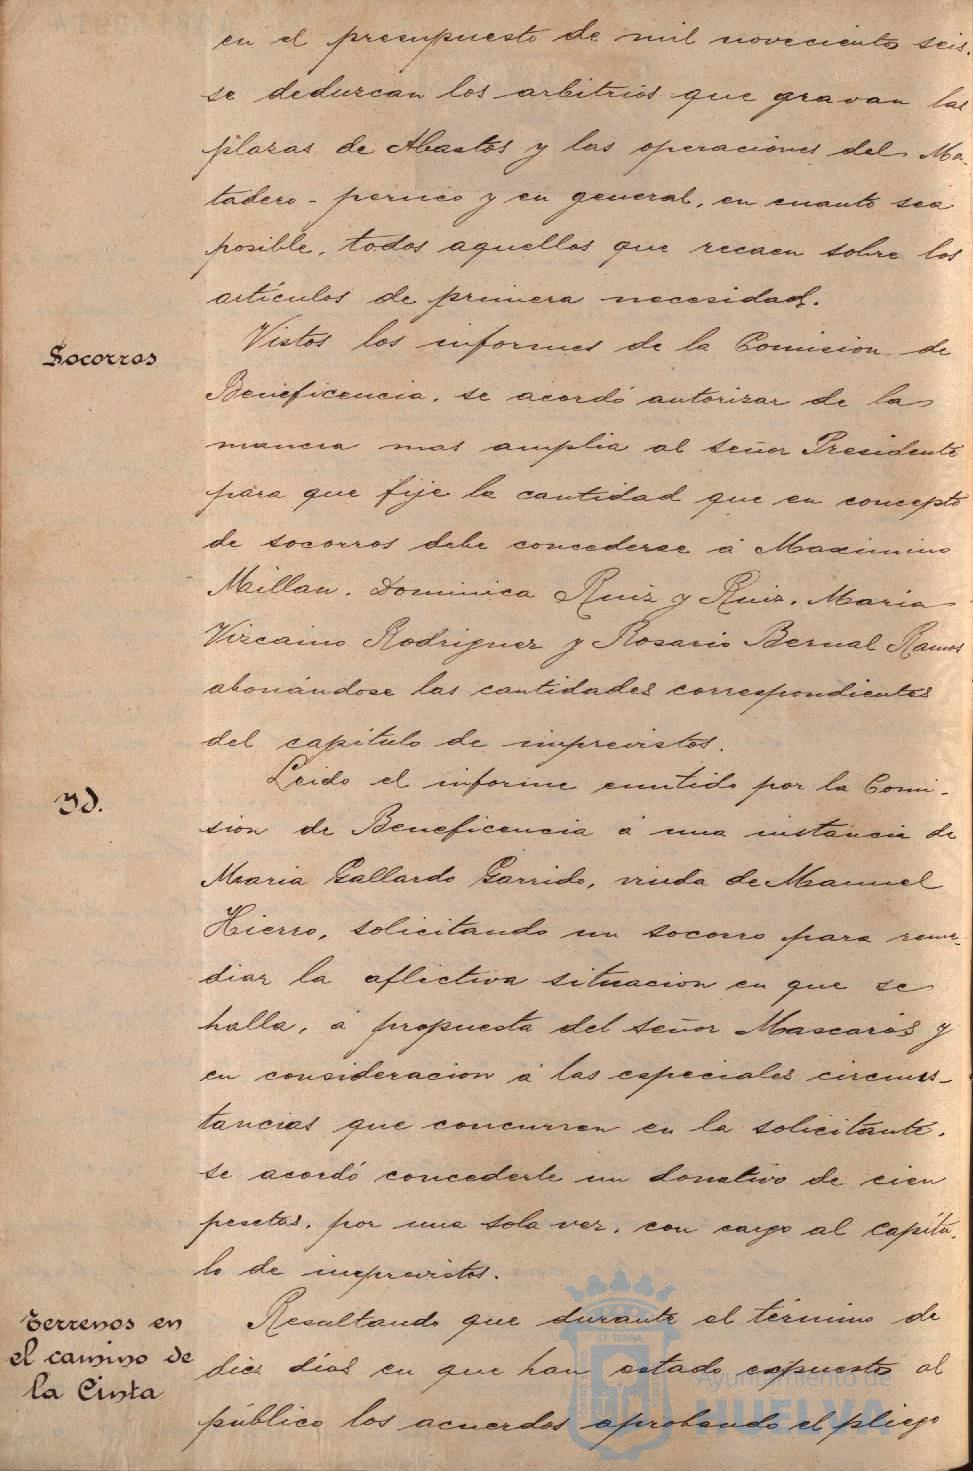 en el presupuesto de mil novecientos seis.
se deduzcan los arbitrios que gravan las
plazas de Abastos y las operaciones del Ma-
tadero - pernico y en general, en cuanto sea
posible, todos aquellos que recaen sobre los
artículos de primera necesidad.
Socorros
Vistos los informes de la Comision de
Beneficencia, se acordó autorizar de la
manera mas amplia al señor Presidente
para que fije la cantidad que en concepto
de socorros debe concederse á Maximino
Millan, Dominica Ruiz y Ruiz, Maria
Vizcaino Rodriguez y Rosario Bernal Ramos
abonándose las cantidades correspondientes
del capítulo de imprevistos.
Yd.
Leido el informe emitido por la Comi-
sion de Beneficencia á una instancia de
Maria Gallardo Garrido, viuda de Manuel
Hierro, solicitando un socorro para reme-
diar la aflictiva situacion en que se
halla, á propuesta del señor Mascarós y
en consideracion á las especiales circuns-
tancias que concurren en la solicitante,
se acordó concederle un donativo de cien
pesetas, por una sola vez, con cargo al capítu-
lo de imprevistos.
Terrenos en
el camino de
la Cinta
Resultando que durante el término de
diez días en que han estado expuestos al
público los acuerdos aprobando el pliego
Ayuntamiento de
HUELVA